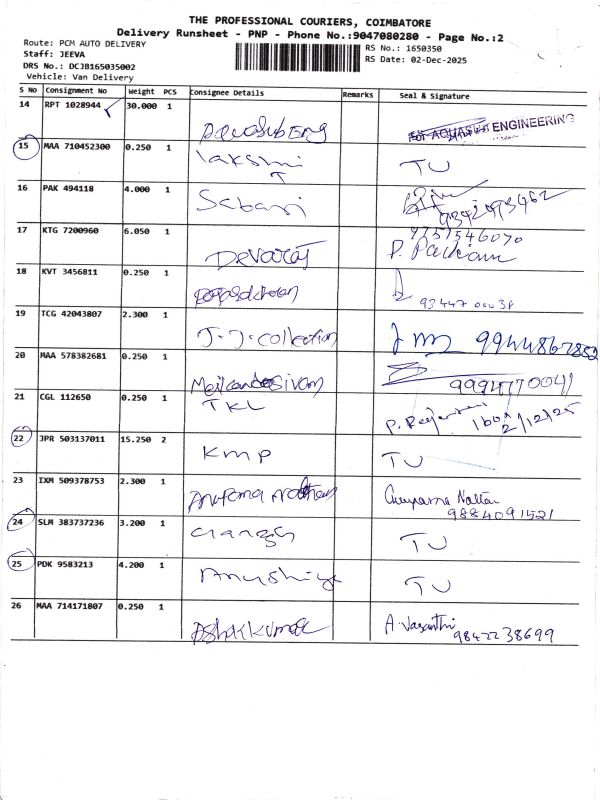 THE PROFESSIONAL COURIERS, COIMBATORE
Delivery Runsheet - PNP - Phone No.:9047080280 - Page No.:2
Route: PCM AUTO DELIVERY
Staff: JEEVA
DRS No.: DCJB165035002
Vehicle: Van Delivery
RS No.: 1650350
RS Date: 02-Dec-2025
S No Consignment No Weight PCS Consignee Details Remarks Seal & Signature
14 RPT 1028944 30.000 1 For AQUASUB ENGINEERING
15 MAA 710452300 0.250 1 Lakshmi TU
16 PAK 494118 4.000 1 Sabari
17 KTG 7200960 6.050 1 Devaraj 9751546070
P. Packiam
18 KVT 3456811 0.250 1 93447 00038
19 TCG 42043807 2.300 1 J-J-collection 9944867852
20 MAA 578382681 0.250 1 Meikandasivam 9994170041
21 CGL 112650 0.250 1 TKL 2/12/25
22 JPR 503137011 15.250 2 KMP TU
23 IXM 509378753 2.300 1 Anupama 9884091521
24 SLM 383737236 3.200 1 TU
25 PDK 9583213 4.200 1 Anushiya TU
26 MAA 714171807 0.250 1 Ashokkumar A. Vasanthi
9842238699